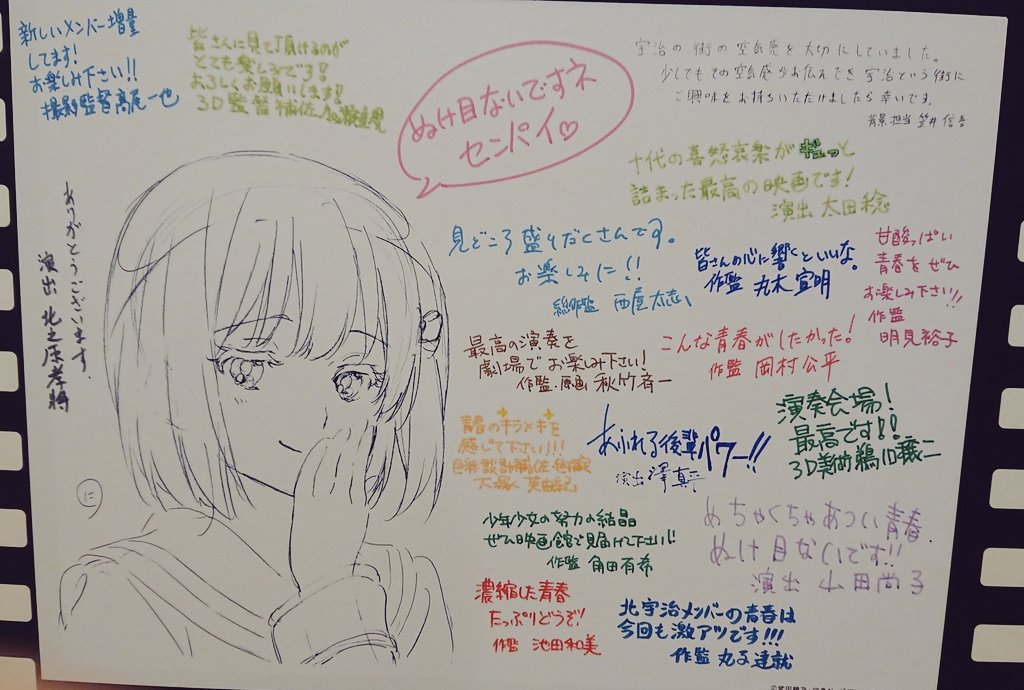 新しいメンバー増量
してます!
お楽しみ下さい!!
撮影監督 高尾一也
皆さんに見て頂けるのが
とても楽しみです!
よろしくお願いします!
3D監督補佐
ぬけ目ないですネ
センパイ♡
宇治の街の空気感を大切にしていました。
少しでもその空気感がお伝えでき宇治という街に
ご興味をお持ちいただけましたら幸いです。
背景担当 笠井信吾
十代の喜怒哀楽がギュっと
詰まった最高の映画です!
演出 太田稔
見どころ盛りだくさんです。
お楽しみに!!
総作監 西屋太志
皆さんの心に響くといいな。
作監 丸木宣明
甘酸っぱい
青春をぜひ
お楽しみ下さい!!
作監
明見裕子
ありがとうございます。
演出 北之原孝將
最高の演奏を
劇場でお楽しみ下さい!
作監・原画 秋竹斉一
こんな青春がしたかった!
作監 岡村公平
青春のキラメキを
感じて下さい!!!
色彩設計補佐・色指定
大塚 英由紀
あふれる後輩パワー!!
演出 澤真平
演奏会場!
最高です!!
3D美術 鵜ノ口穣二
に
少年少女の努力の結晶
ぜひ映画館で見届けて下さい!
作監 角田有希
めちゃくちゃあつい青春。
ぬけ目ないです!!
演出 山田尚子
濃縮した青春
たっぷりどうぞ!
作監 池田和美
北宇治メンバーの青春は
今回も激アツです!!!
作監 丸子達就